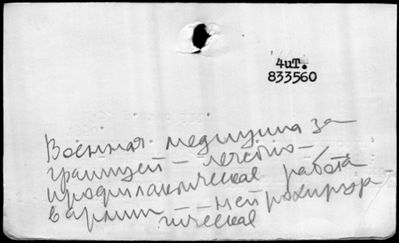 4иТ.
833560
Военная медицина за
границей — лечебно-
профилактическая работа
в армии — нейрохирур-
гическая